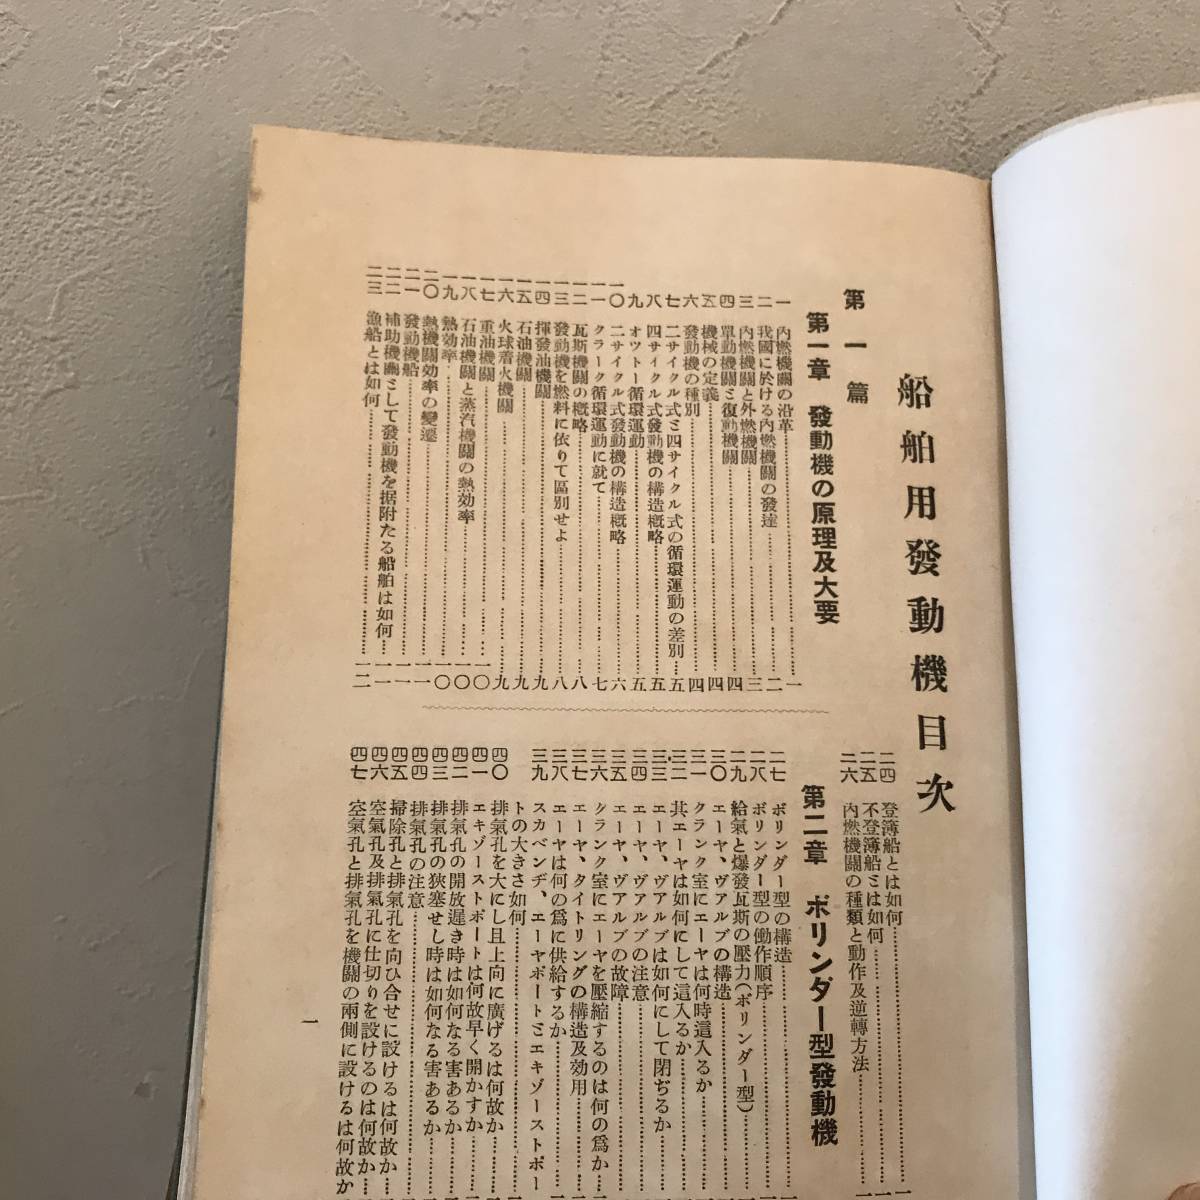 船舶用發動機目次
第一篇
第一章 發動機の原理及大要
一 內燃機關の沿革……一
二 我國に於ける內燃機關の發達……二
三 內燃機關と外燃機關……三
四 單動機關と復動機關……四
五 機械の定義……四
六 發動機の種別……四
七 二サイクル式と四サイクル式の循環運動の差別……五
八 四サイクル式發動機の構造概略……五
九 オツトー循環運動……五
一〇 二サイクル式發動機の構造概略……六
一一 クラーク循環運動に就て……七
一二 瓦斯機關の概略……八
一三 發動機を燃料に依りて區別せよ……八
一四 揮發油機關……九
一五 石油機關……九
一六 火球着火機關……九
一七 重油機關……一〇
一八 石油機關と蒸汽機關の熱効率……一〇
一九 熱効率……一〇
二〇 熱機關効率の變遷……一一
二一 發動機船……一一
二二 補助機關として發動機を据附たる船舶は如何……一一
二三 漁船とは如何……一二
二四 登簿船とは如何……一
二五 不登簿船とは如何……一
二六 內燃機關の種類と動作及逆轉方法……一
第二章 ボリンダー型發動機
二七 ボリンダー型の構造……一
二八 ボリンダー型の働作順序……一
二九 給氣と爆發瓦斯の壓力(ボリンダー型)……一
三〇 エーヤ、ヴアルブの構造……一
三一 クランク室にエーヤは何時這入るか……一
三二 其エーヤは如何にして這入るか……一
三三 エーヤ、ヴアルブは如何にして閉ぢるか……一
三四 エーヤ、ヴアルブの注意……一
三五 エーヤ、ヴアルブの故障……一
三六 クランク室にエーヤを壓縮するのは何の爲か……一
三七 エーヤ、タイトリングの構造及効用……一
三八 エーヤは何の爲に供給するか……一
三九 スカベンヂ、エーヤポートとエキゾーストポー
トの大きさ如何……一
四〇 排氣孔を大にし且上向に廣げるは何故か……一
四一 エキゾーストポートは何故早く開かすか……一
四二 排氣孔の開放遲き時は如何なる害あるか……一
四三 排氣孔の狹塞せし時は如何なる害あるか……一
四四 排氣孔の注意……一
四五 掃除孔と排氣孔を向ひ合せに設けるは何故か……
四六 空氣孔及排氣孔に仕切りを設けるのは何故か……
四七 空氣孔と排氣孔を機關の兩側に設けるは何故か
一